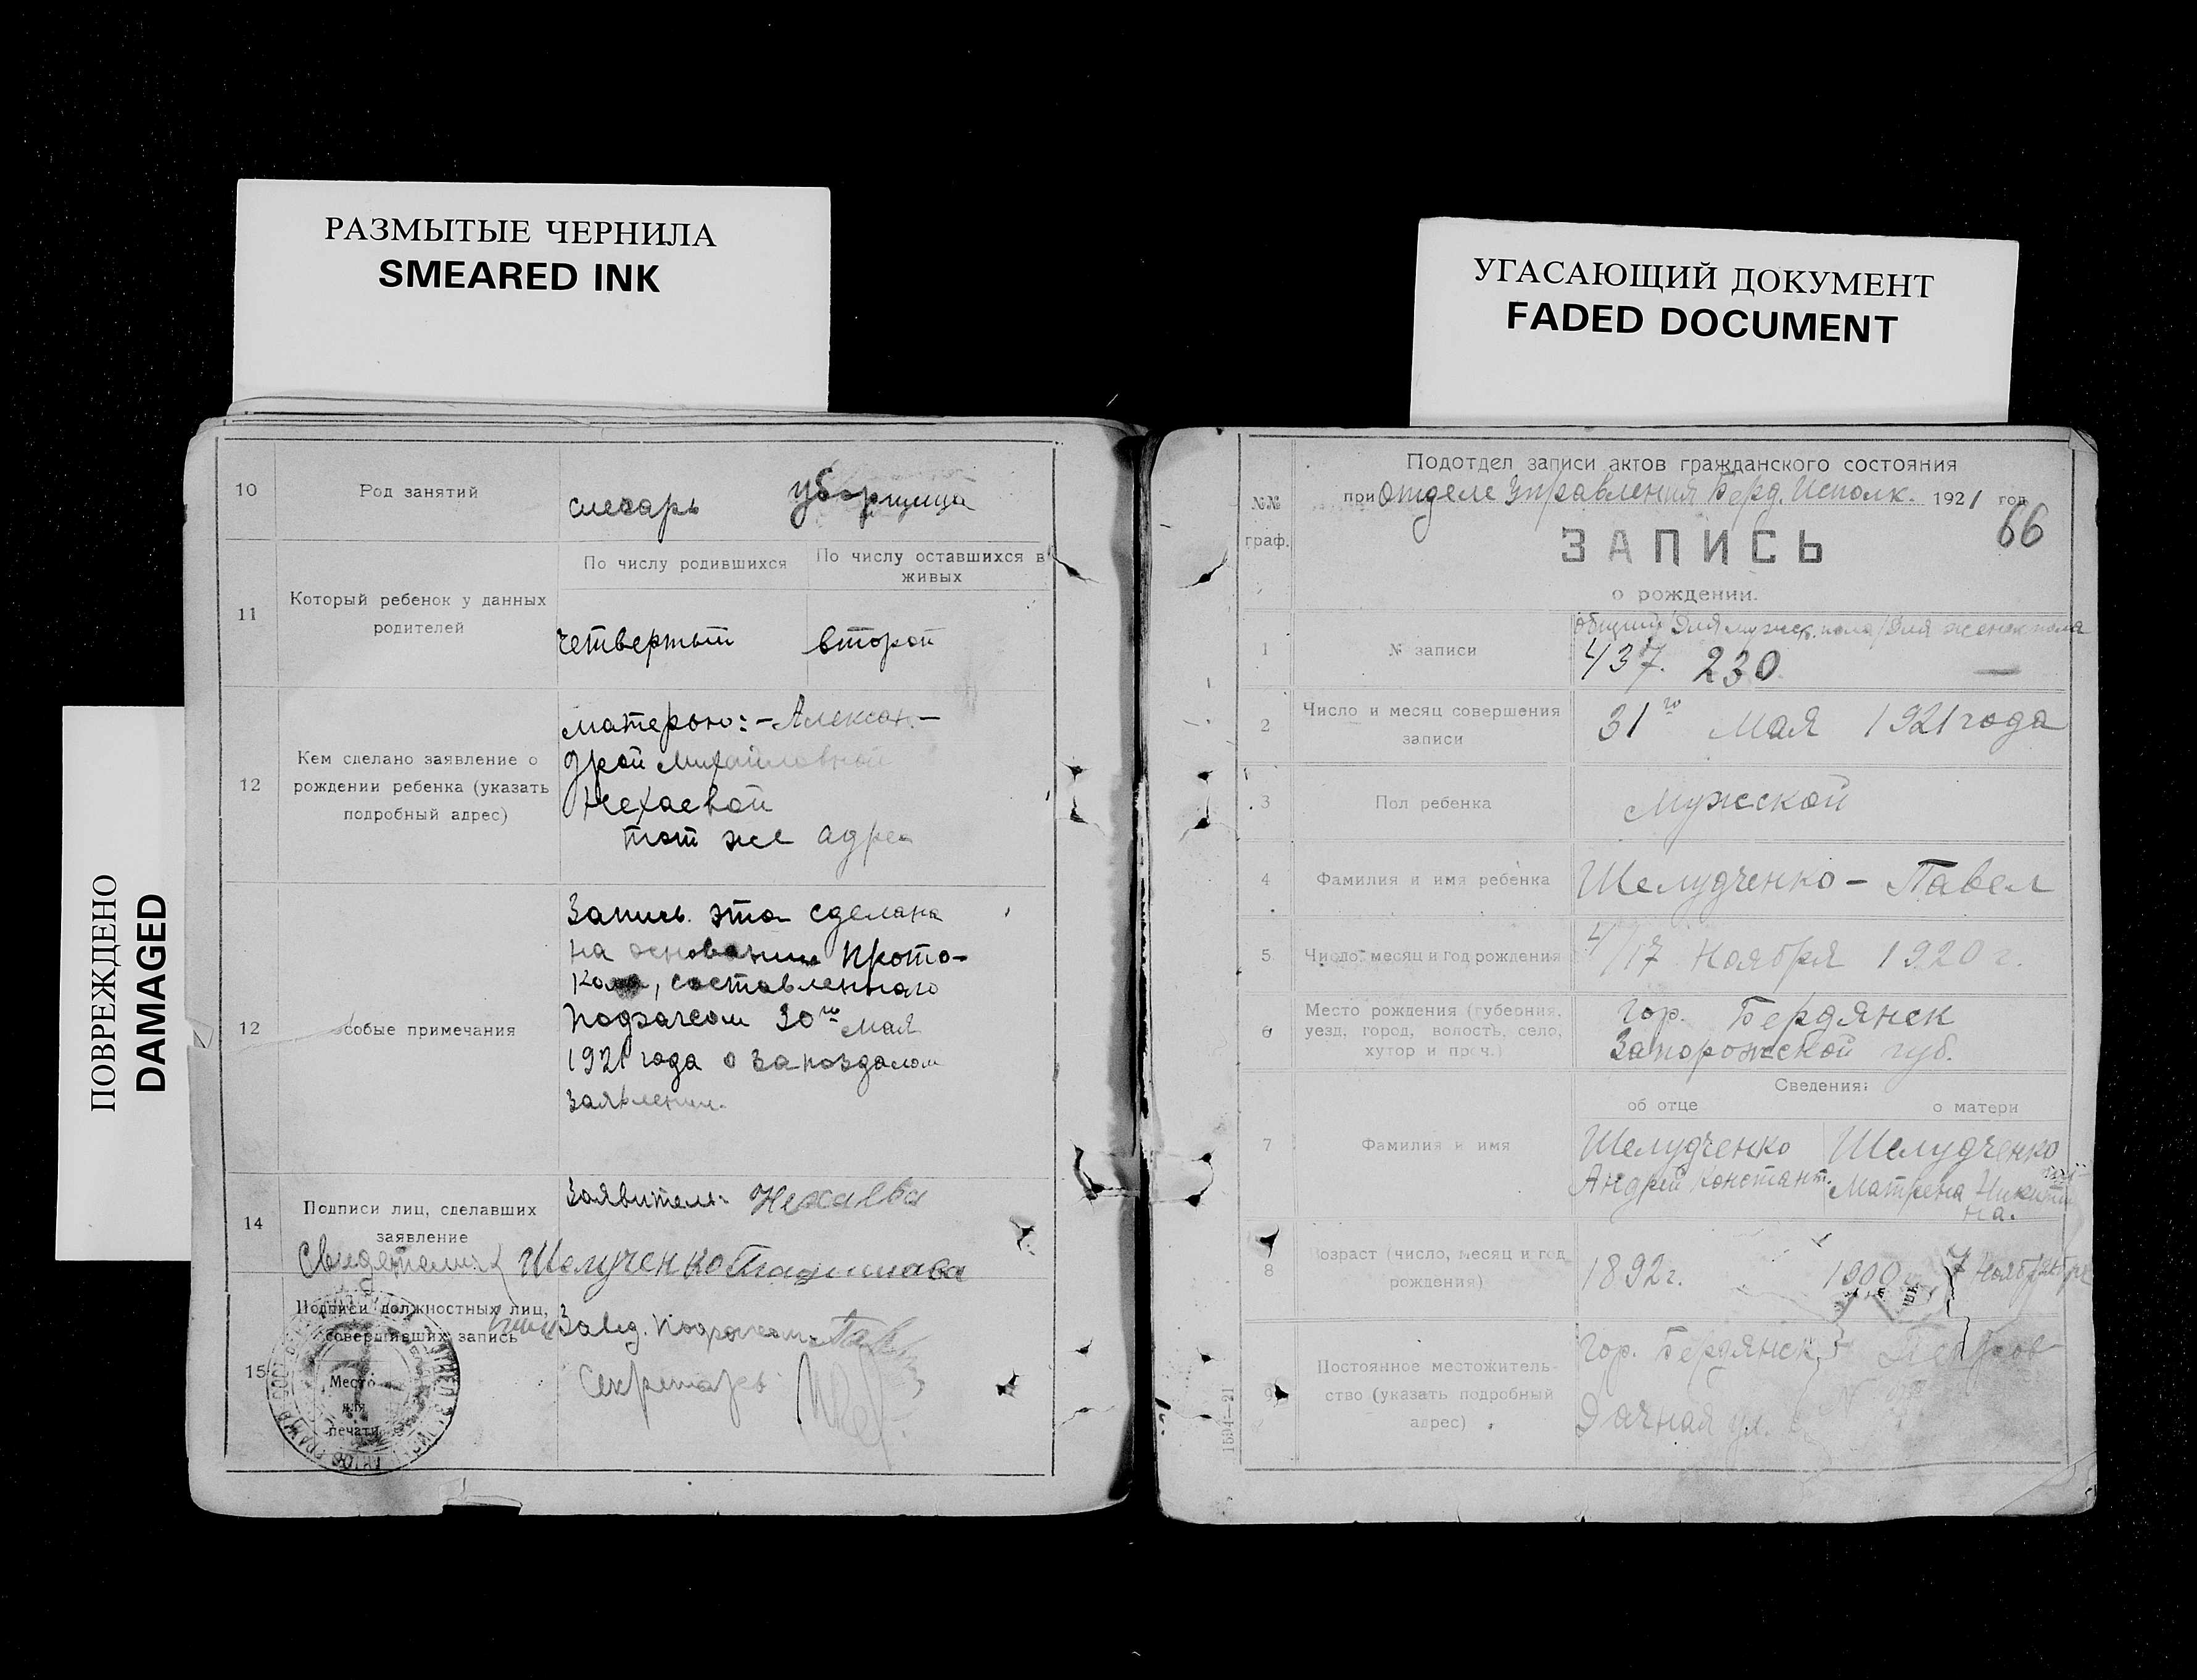 РАЗМЫТЫЕ ЧЕРНИЛА
SMEARED INK
УГАСАЮЩИЙ ДОКУМЕНТ
FADED DOCUMENT
ПОВРЕЖДЕНО
DAMAGED
10 Род занятий слесарь уборщица
По числу родившихся По числу оставшихся в живых
11 Который ребенок у данных родителей
четвертый второй
12 Кем сделано заявление о рождении ребенка (указать подробный адрес)
матерью: - Алексан -
дрой Михайловной
Нехаевой
тот же адрес
12 собые примечания
Запись эта сделана
на основании прото-
кола, составленного
Подзагсом 30го мая
1921 года о запоздалом
заявлении.
14 Подписи лиц, сделавших заявление
Заявитель: Нехаева
Свидетели: Шелученко
15 Подписи должностных лиц, совершивших запись
Завед. Подзагсом
Секретарь
Место
для
печати
Подотдел записи актов гражданского состояния
при Отделе Управления Берд. Исполк. 1921 год
№№ граф.
66
ЗАПИСЬ
о рождении.
общий Для мужск. пола / Для женск пола
1 № записи 437. 230 —
2 Число и месяц совершения записи 31го Мая 1921 года
3 Пол ребенка Мужской
4 Фамилия и имя ребенка Шелудченко - Павел
5 Число месяц и год рождения 4/17 Ноября 1920 г.
6 Место рождения (губерния, уезд, город, волость, село, хутор и проч.)
гор. Бердянск
Запорожской губ.
Сведения:
об отце о матери
7 Фамилия и имя
Шелудченко Шелудченко
Андрей Констант. Матрена Никити
на.
8 Возраст (число, месяц и год рождения) 1892 г. 1900 г. 7
9 Постоянное местожительство (указать подробный адрес)
гор. Бердянск
Дачная ул.
1594—21